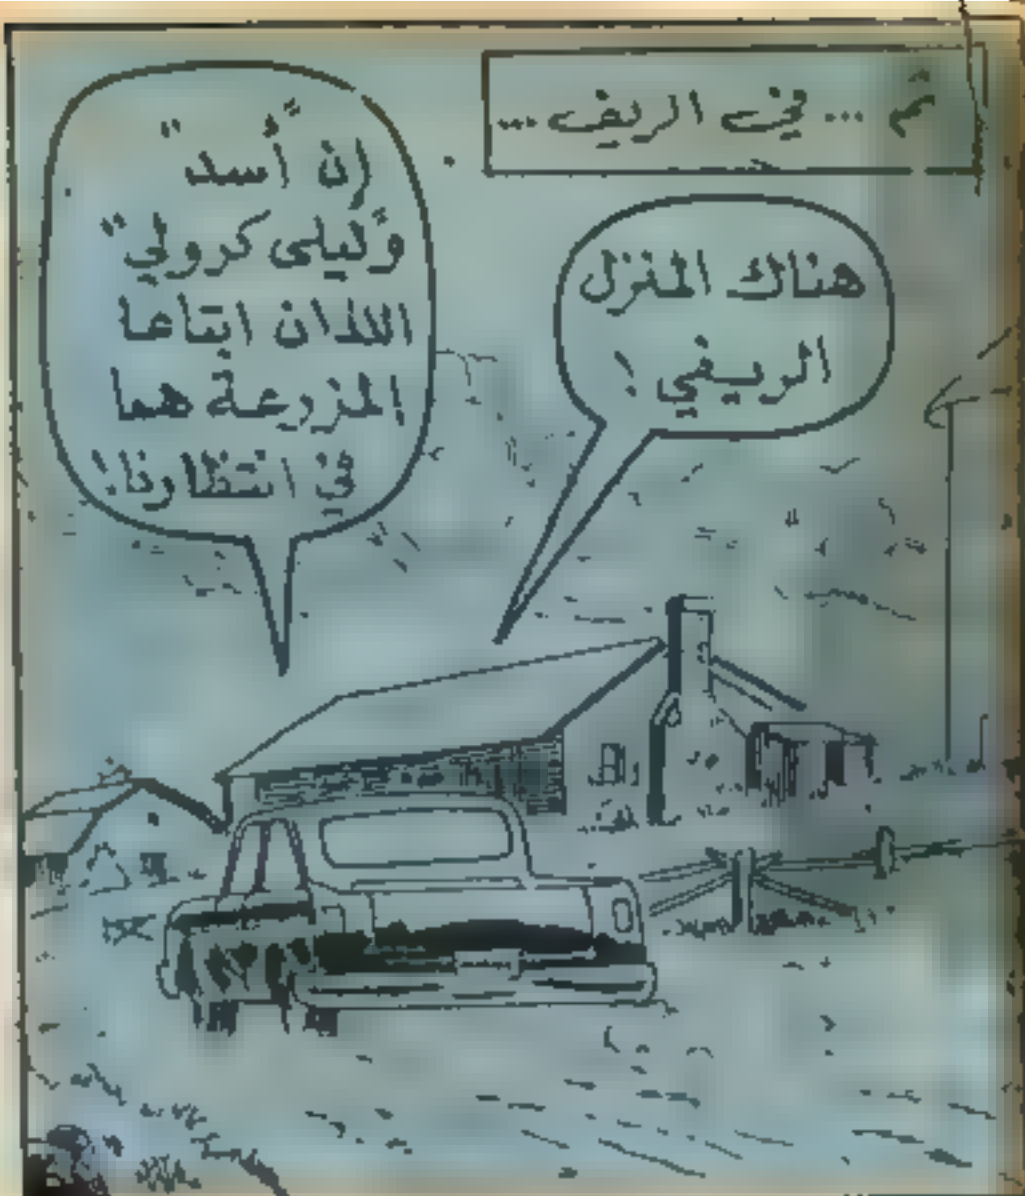 ثم ... في الريف ...
هناك المنزل
الريفي !
إن "أسد"
و"ليلى كرولي"
اللذان ابتاعا
المزرعة هما
في انتظارنا !